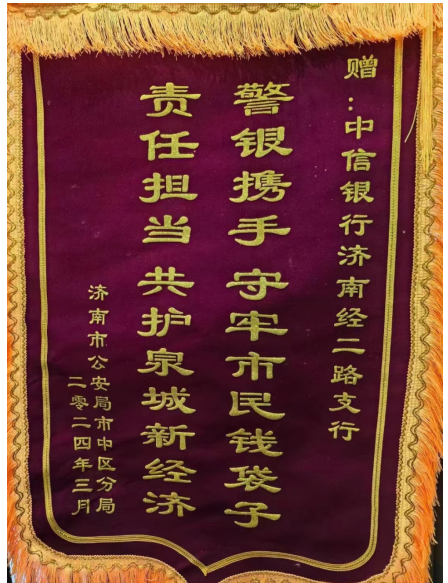 赠:中信银行济南经二路支行
警银携手 守牢市民钱袋子
责任担当 共护泉城新经济
济南市公安局市中区分局
二零二四年三月